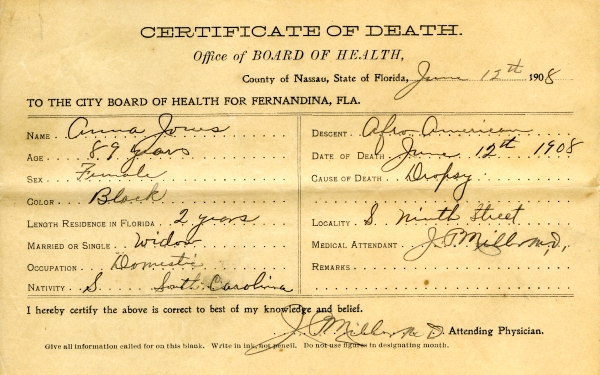 CERTIFICATE OF DEATH.
Office of BOARD OF HEALTH,
County of Nassau, State of Florida, June 12th 1908
TO THE CITY BOARD OF HEALTH FOR FERNANDINA, FLA.
NAME Anna Jones
AGE 89 years
SEX Female
COLOR Black
LENGTH RESIDENCE IN FLORIDA 2 years
MARRIED OR SINGLE Widow
OCCUPATION Domestic
NATIVITY S South Carolina
DESCENT Afro American
DATE OF DEATH June 12th 1908
CAUSE OF DEATH Dropsy
LOCALITY S Ninth Street
MEDICAL ATTENDANT J. P. Miller M.D.,
REMARKS
I hereby certify the above is correct to best of my knowledge and belief.
J. P. Miller M D Attending Physician.
Give all information called for on this blank. Write in ink, not pencil. Do not use figures in designating month.